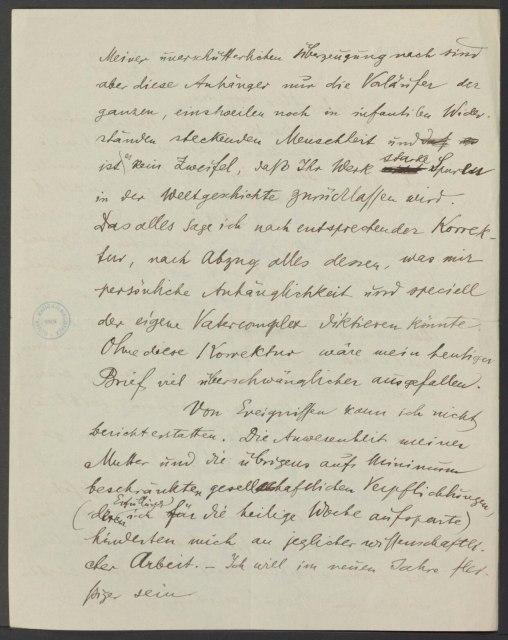 Meiner unerschütterlichen Überzeugung nach sind
aber diese Anhänger nur die Vorläufer der
ganzen, einstweilen noch in infantilen Wider-
ständen steckenden Menschheit und
ist kein Zweifel, daß Ihr Werk starke Spuren
in der Weltgeschichte zurücklassen wird.
Das alles sage ich nach entsprechender Korrek-
tur, nach Abzug alles dessen, was mir
persönliche Anhänglichkeit und speciell
der eigene Vatercomplex diktieren könnte.
Ohne diese Korrektur wäre mein heutiger
Brief viel überschwänglicher ausgefallen.
Von Ereignissen kann ich nicht
berichterstatten. Die Anwesenheit meiner
Mutter und die übrigens aufs Minimum
beschränkten gesellschaftlichen Verpflichtungen,
(deren Erfüllung ich für die heilige Woche aufsparte)
hinderten mich an jeglicher wissenschaftli-
cher Arbeit. – Ich will im neuen Jahre flei-
ßiger sein